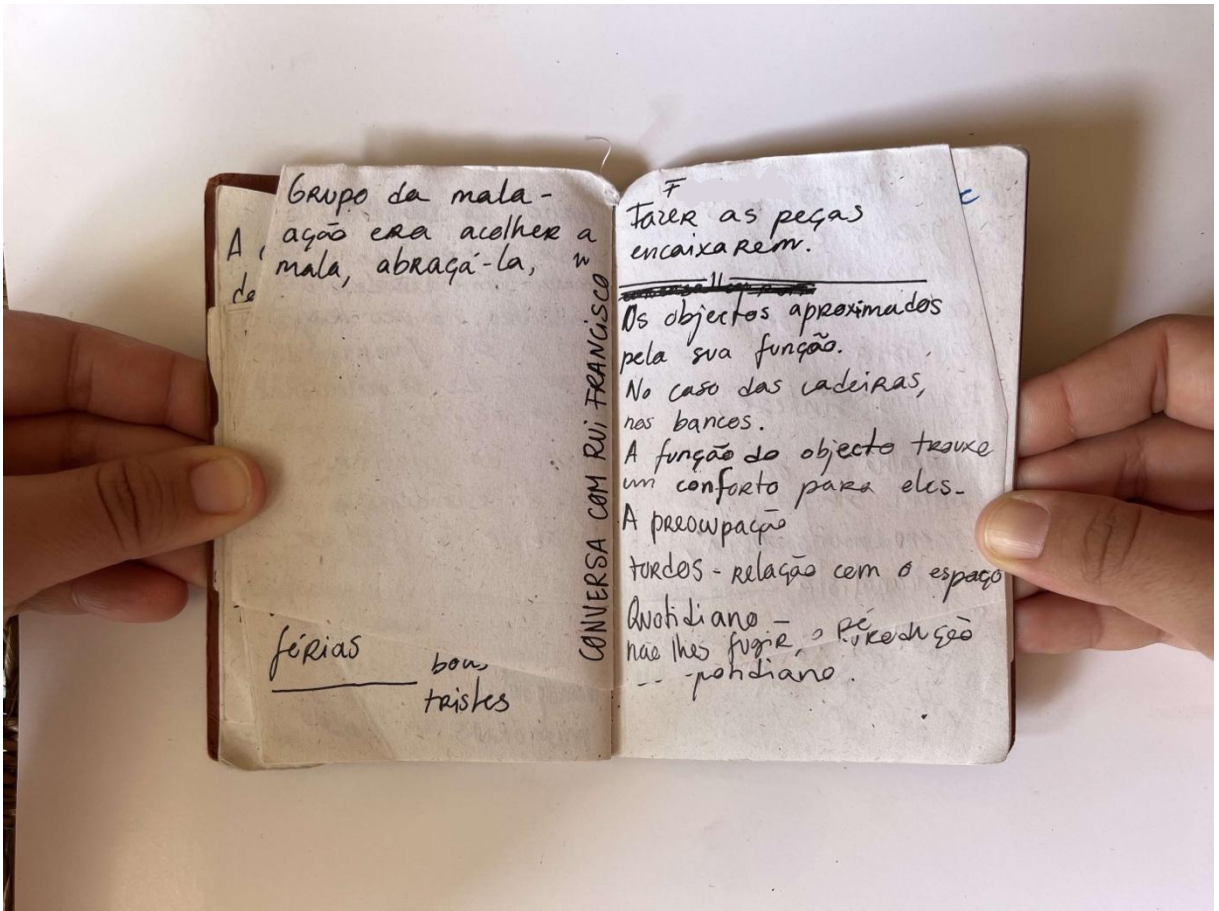 Grupo da mala -
ação era acolher a
mala, abraçá-la,
A
de
férias
bons
tristes
CONVERSA COM RUI FRANCISCO
F
Fazer as peças
encaixarem.
Os objectos aproximados
pela sua função.
No caso das cadeiras,
nos bancos.
A função do objecto trouxe
um conforto para eles-
A preocupação
- Relação com o espaço
Quotidiano -
não lhes fugir, o pé